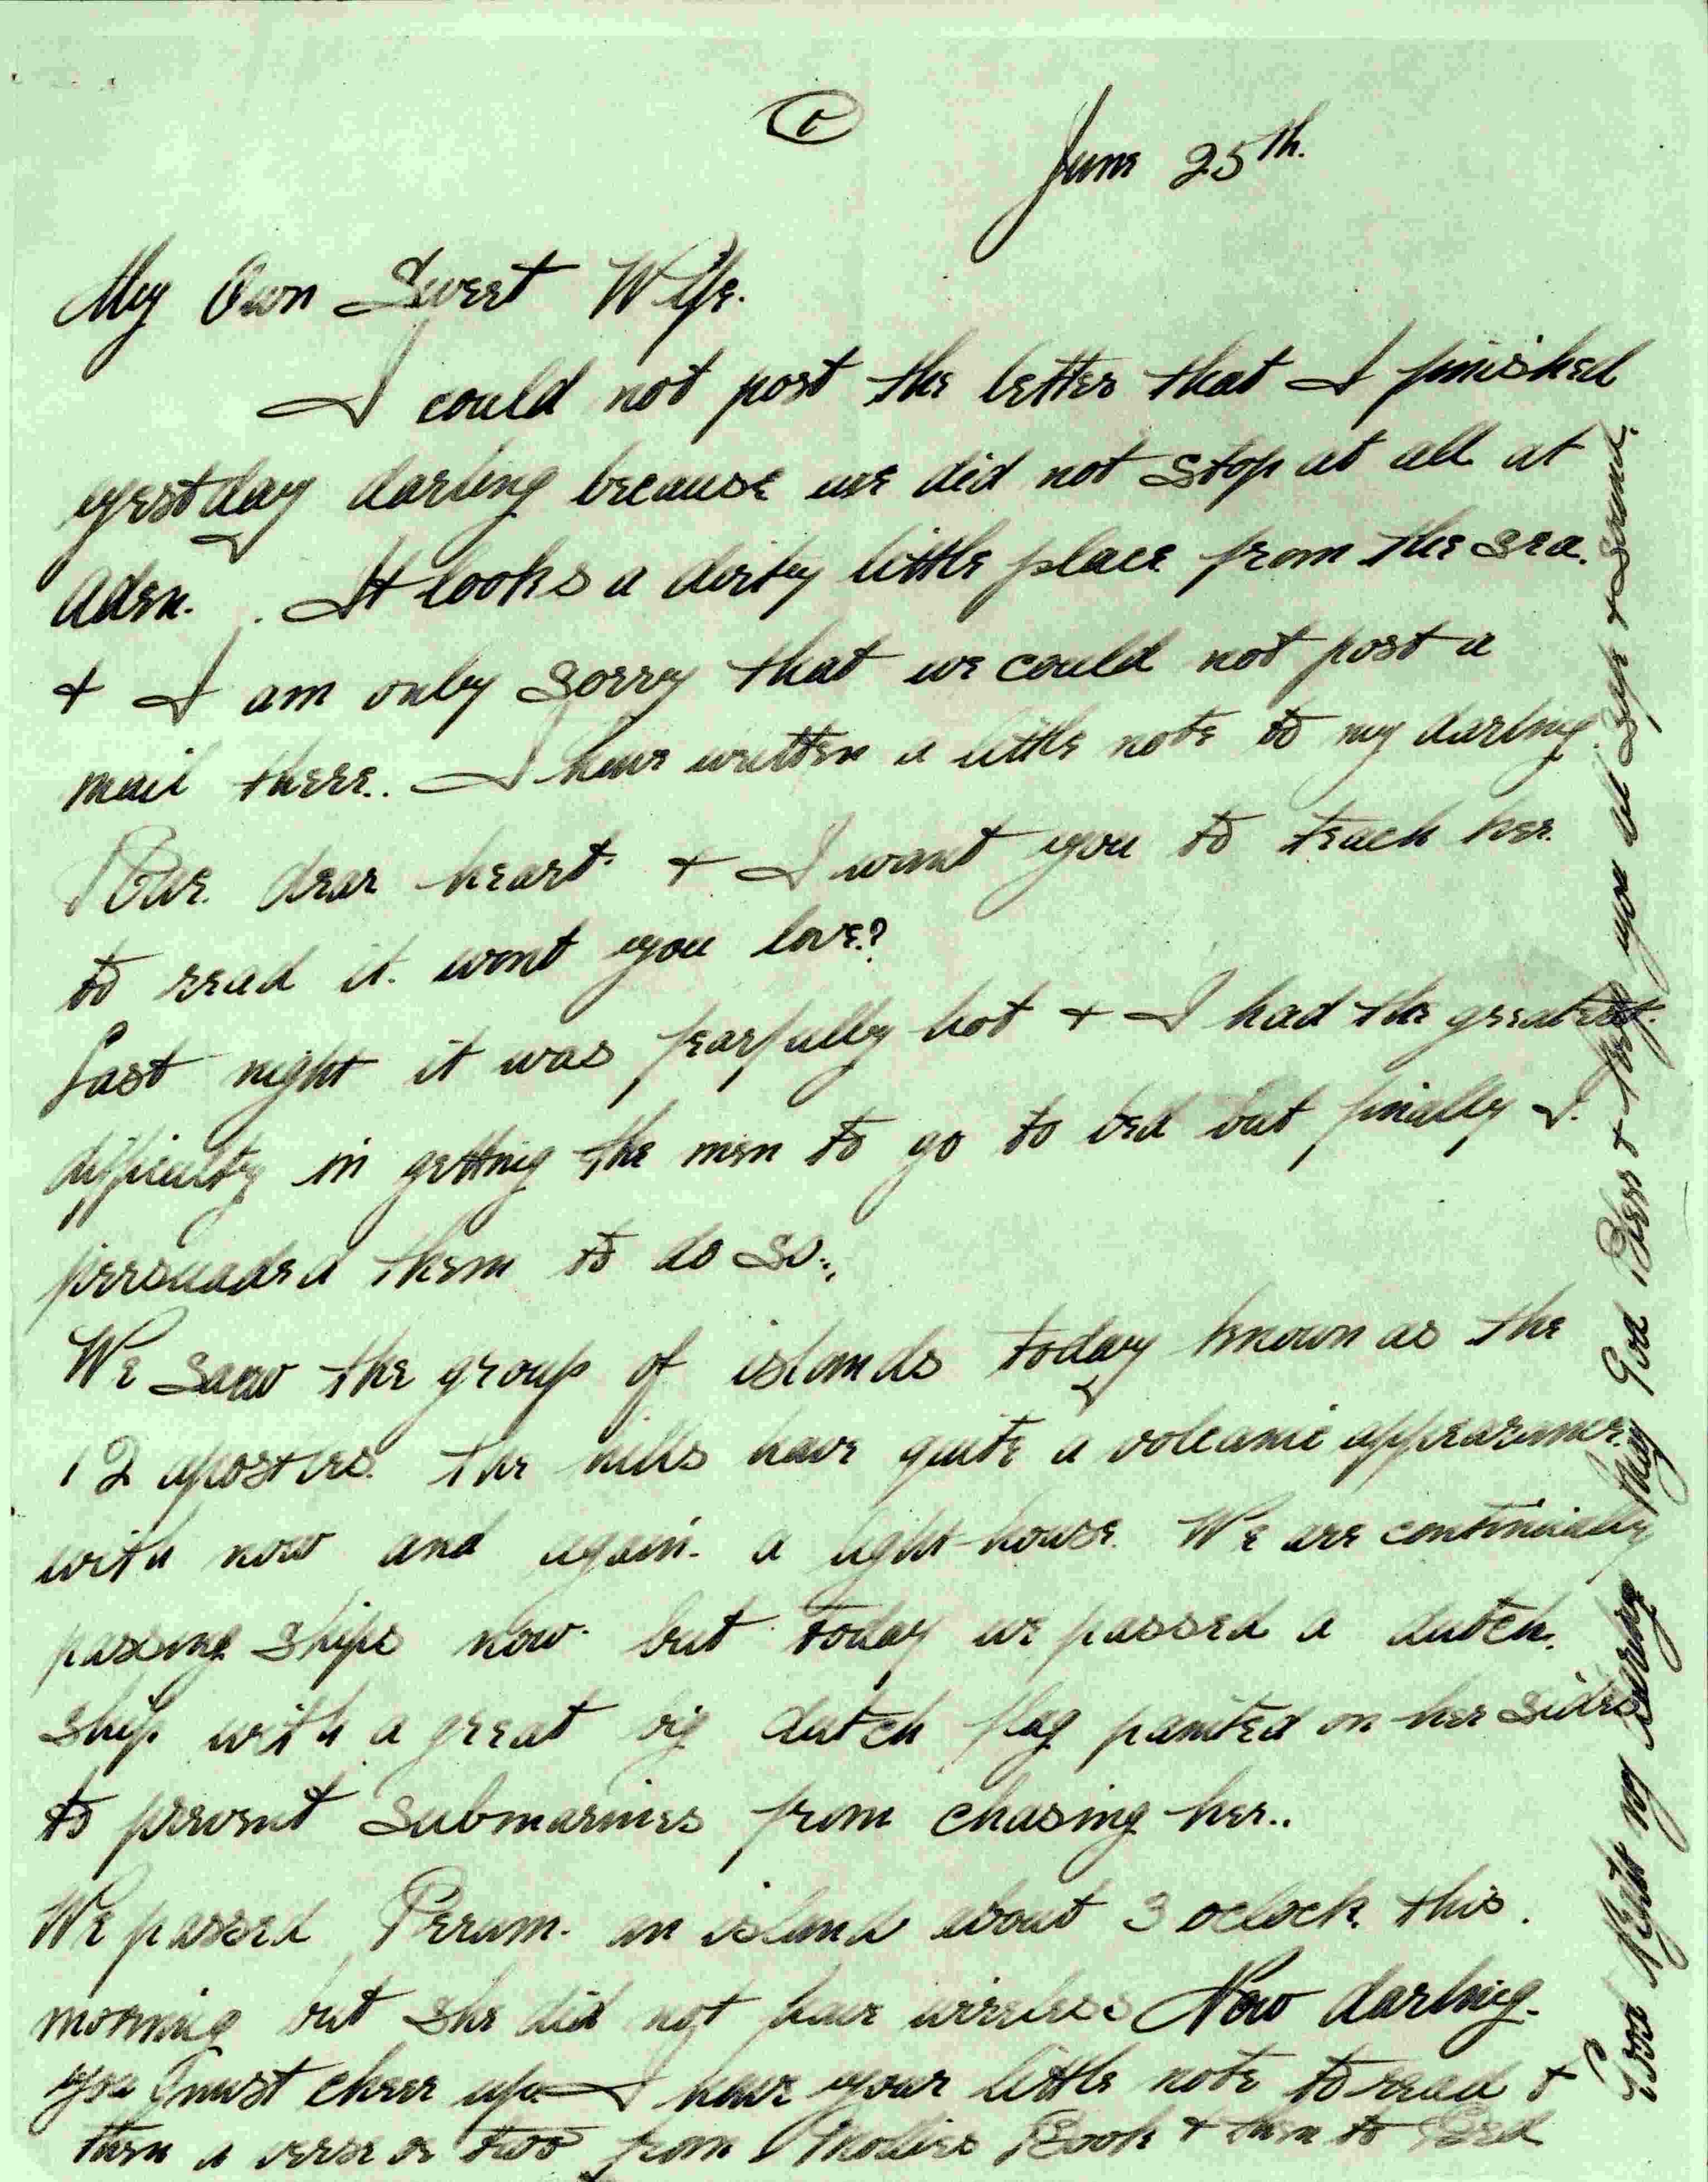 June 25th.
My Own Sweet Wife.
I could not post the letter that I finished
yestday darling because we did not stop at all at
Aden. It looks a dirty little place from the sea.
+ I am only sorry that we could not post a
mail there.. I have written a little note to my darling
dear heart + I want you to teach her
to read it. wont you love?
Last night it was fearfully hot + I had the greatest
difficulty in getting the men to go to bed but finally I.
persuaded them to do so..
We saw the group of islands today known as the
12 apostles. The hills have quite a volcanic appearance.
with now and again. a light-house. We are continually
passing ships now. but today we passed a dutch.
ship with a great big dutch flag painted on her sides
to prevent submarines from chasing her..
We passed Perum. an island about 3 oclock this.
morning but she did not have wireless Now darling.
you must cheer up. I have your little note to read +
then a verse or two from Mothers Book + then to Bed
Good Night my darling May God Bless + keep you all safe + sound.